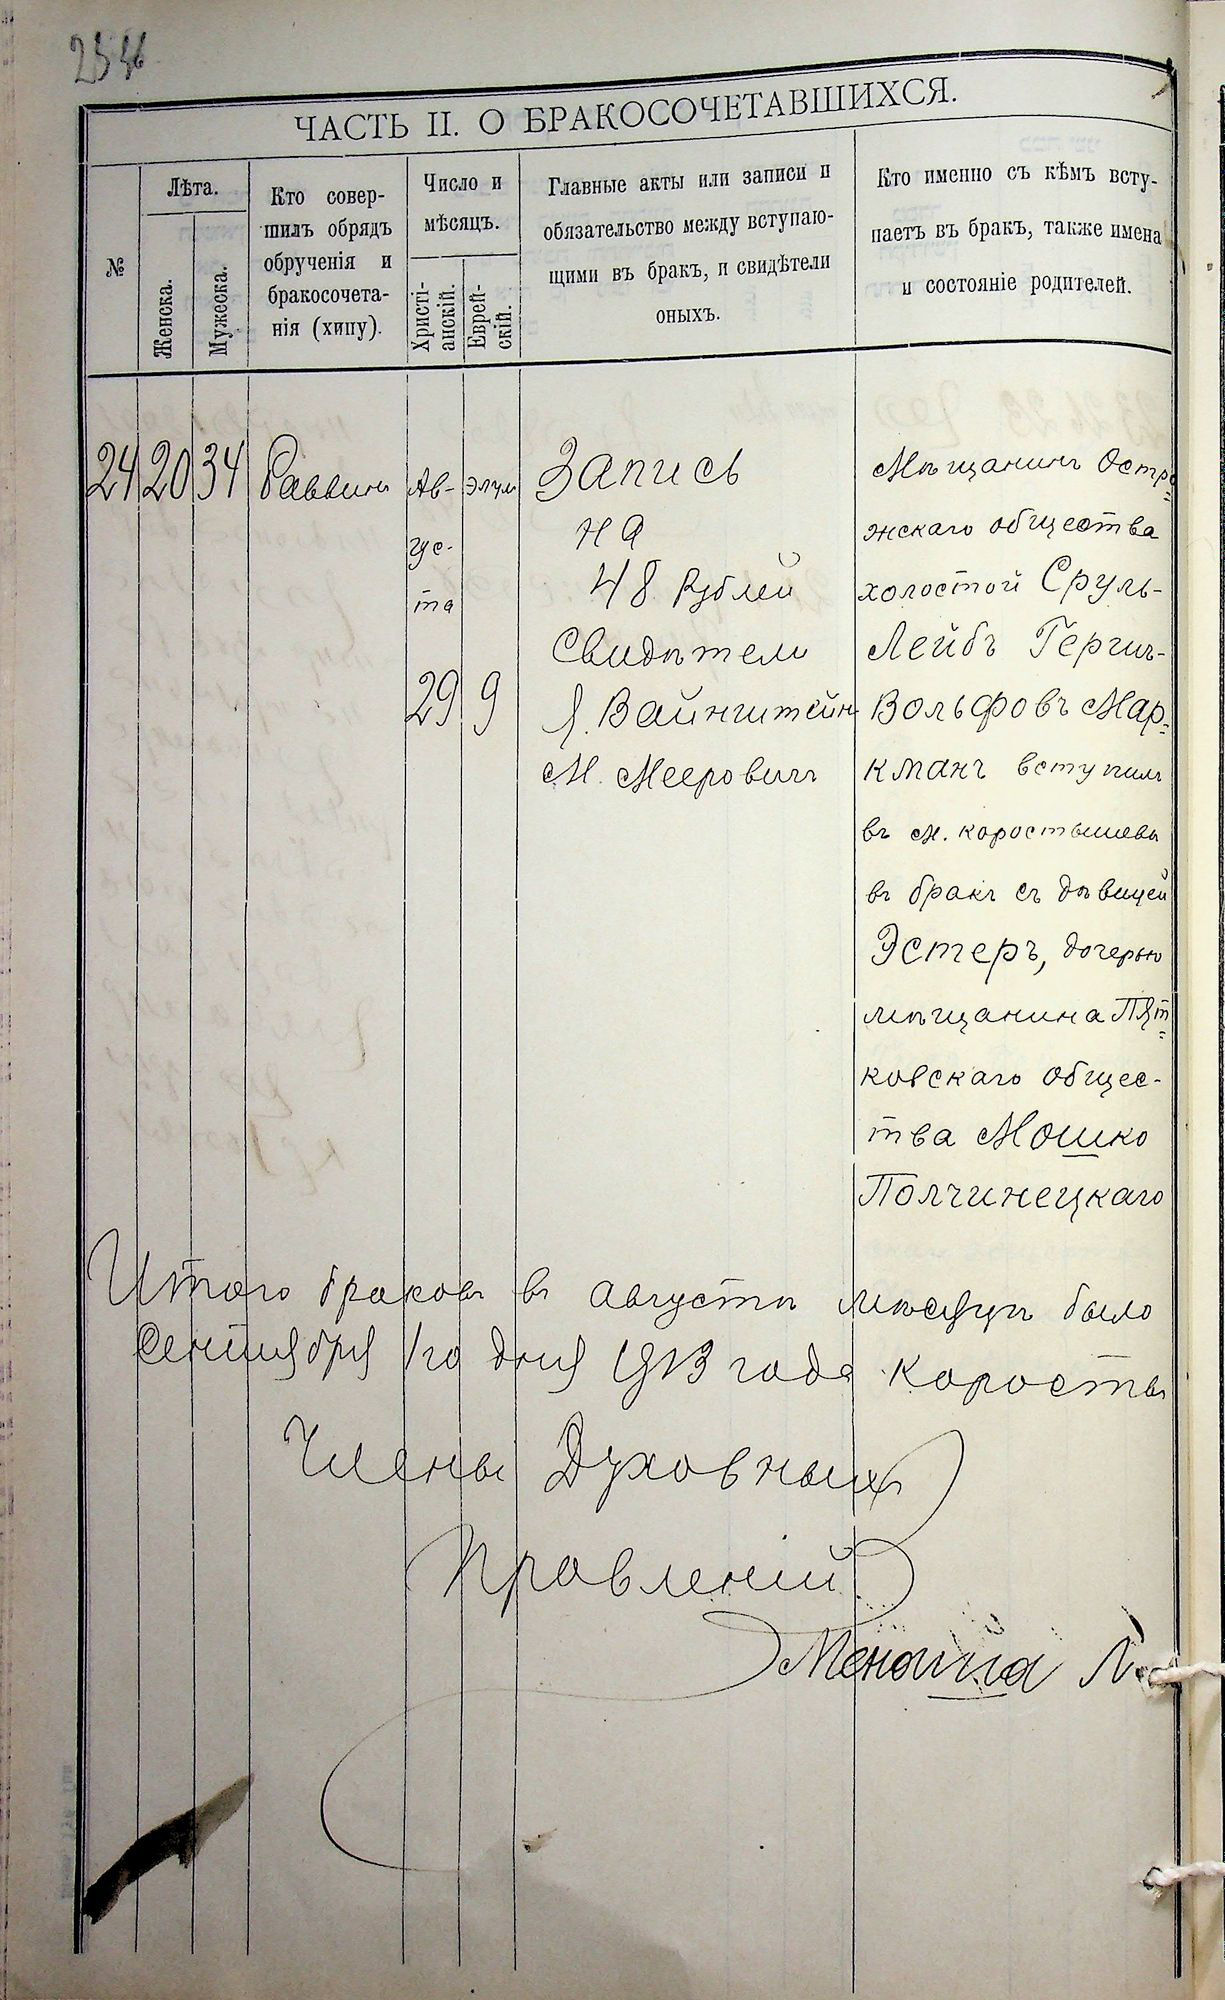 ЧАСТЬ II. О БРАКОСОЧЕТАВШИХСЯ.
№
Лѣта.
Женска.
Мужеска.
Кто совер-
шилъ обрядъ
обрученія и
бракосочета-
нія (хипу).
Число и
мѣсяцъ.
Христі-
анскій.
Еврей-
скій.
Главные акты или записи и
обязательство между вступаю-
щими въ бракъ, и свидѣтели
оныхъ.
Кто именно съ кѣмъ всту-
паетъ въ бракъ, также имена
и состояніе родителей.
24
20
34
Раввинъ
Ав-
гус-
та
29
элулъ
9
Запись
на
48 рублей
Свидѣтели
Л. Вайнштейнъ
М. Мееровичъ
Мѣщанинъ Остро=
жскаго общества
холостой Сруль-
Лейбъ Гершъ-
Вольфовъ Мар=
кманъ вступилъ
въ м. Коростышевѣ
въ бракъ съ дѣвицей
Эстеръ, дочерью
мѣщанина Пят=
ковскаго общес-
тва Мошко
Полчинецкаго
Итого браковъ въ августѣ мѣсяцѣ было
Сентября 1го дня 1913 года Коросты
Члены Духовныхъ
Правленій